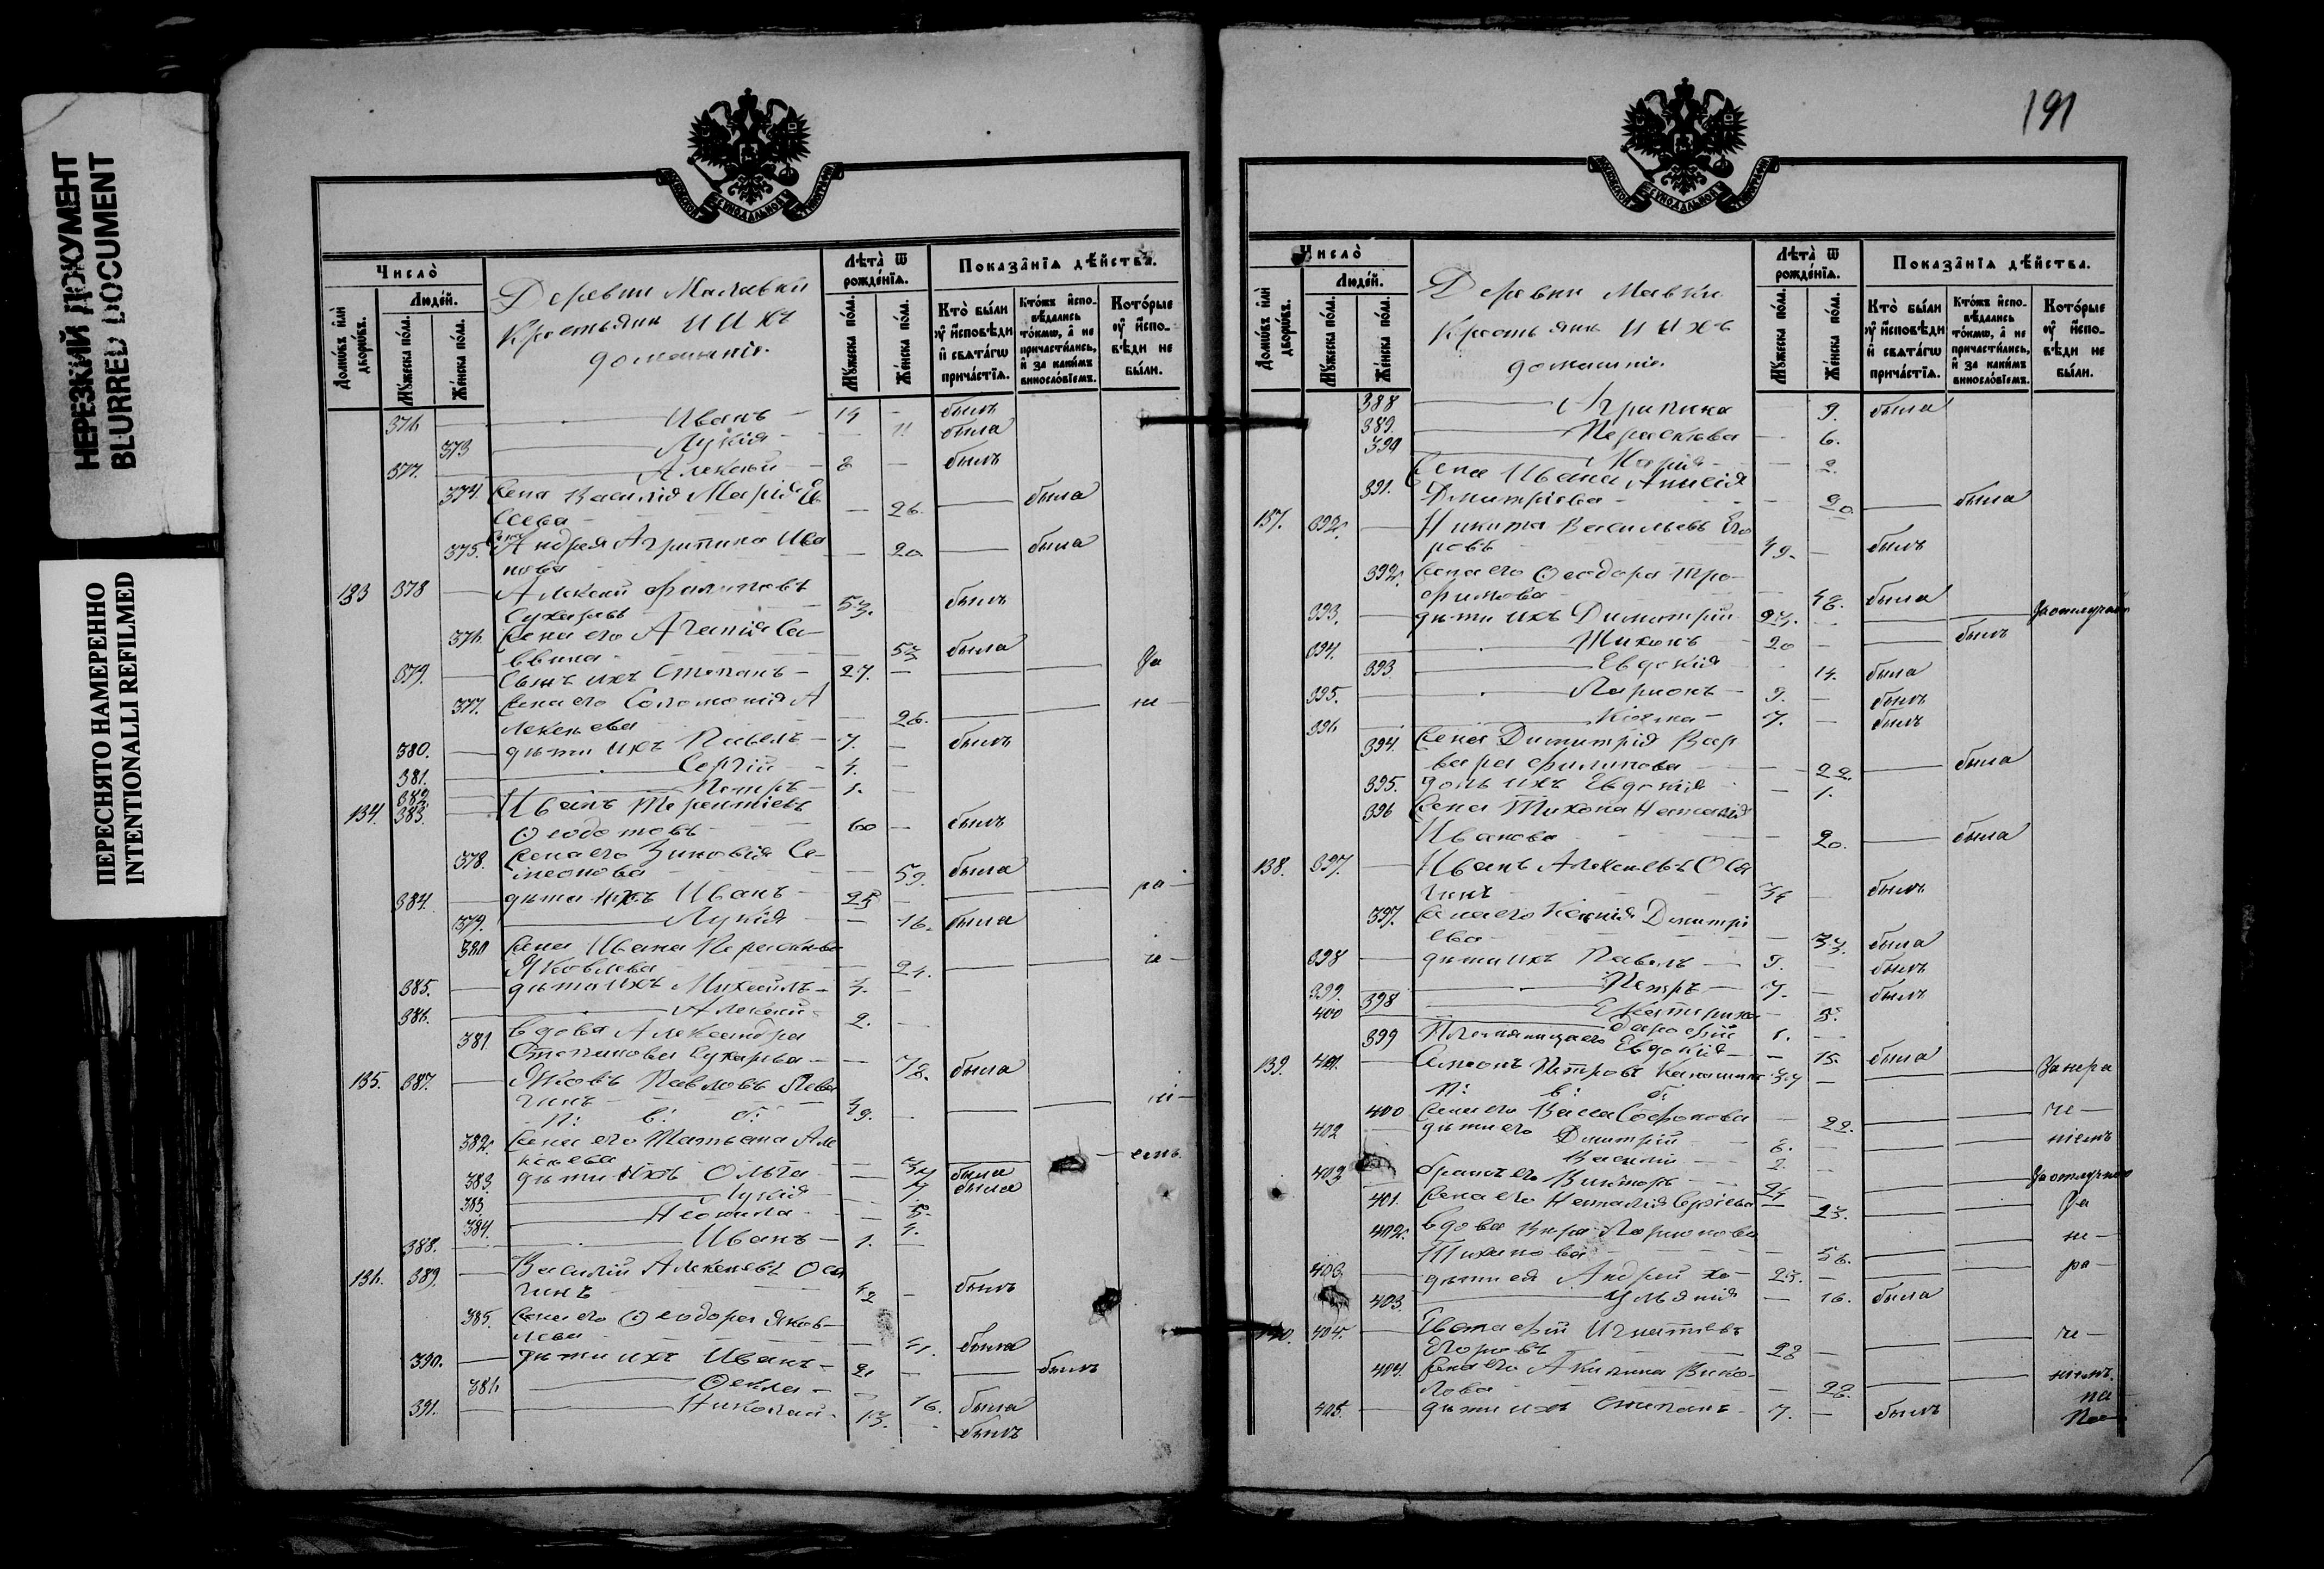 НЕРЕЗКИЙ ДОКУМЕНТ
BLURRED DOCUMENT
ПЕРЕСНЯТО НАМЕРЕННО
INTENTIONALLI REFILMED
Число̀
Людéй.
Домѡ́въ и҆лѝ дворѡ́въ.
Мꙋ́жеска пóла.
Жéнска пóла.
Деревни
Крестьяне и ихъ
домашніе.
Лѣта̀ ѿ рождéнїѧ.
Мꙋ́жеска пóла.
Жéнска пóла.
Показáнїѧ дѣ́йства.
Ктò бы́ли ᲂу҆ и҆сповѣди и҆ свѧтáгѡ причáстїѧ.
Ктóжъ и҆спо-вѣдались тóкмѡ, а҆ не причасти́лись, и҆ за каки́мъ винослóвїемъ.
Котóрые ᲂу҆ и҆спо-вѣди не бы́ли.
376 Иванъ 14 былъ
373 Лукія 11 была
377. Алексѣй 8 былъ
374. Жена Василія Марія Ев
сеева 26. была
375. Жена Андрея Агрипина Ива
нова 20 была
133 378 Алексѣй Филиповъ
Сухаревъ 53. былъ
376 Жена его Агапія Са-
ввина 53 была
379. Сынъ ихъ Степанъ 27. За
377. Жена его Соломонія А
лексѣева 26. не
380. дѣти ихъ Павелъ 7. былъ
381. Сергій 4.
382. Петръ 1.
134. 383. Иванъ Терентіевъ
Ѳедотовъ 60 былъ
378. Жена его Зиновія Се-
меонова 59. была
384. дѣти ихъ Иванъ 25 ра
379. Лукія 16. была
380 Жена Ивана Параскева
Яковлева 24. че
385. дѣти ихъ Михаилъ 4.
386. Алексѣй 2.
381 Вдова Александра
Степанова Сухарева 72. была
135. 387. Яковъ Павловъ
п: в: б: 49. ні
382. Жена его Татьяна Але
ксѣева емъ
383. дѣти ихъ Ольга была
383. Лукія 7 была
384. Неонила 5.
388. Иванъ 1.
136. 389. Василій Алексѣевъ Ося
гинъ 42 былъ
385. Жена его Ѳеодора Яков-
лева 41. была
390. дѣти ихъ Иванъ 21 былъ
386 Ѳекла 16. была
391. Николай 13. былъ
191
Число̀
Людéй.
Домѡ́въ и҆лѝ дворѡ́въ.
Мꙋ́жеска пóла.
Жéнска пóла.
Деревни
Крестьяне и ихъ
домашніе.
Лѣта̀ ѿ рождéнїѧ.
Мꙋ́жеска пóла.
Жéнска пóла.
Показáнїѧ дѣ́йства.
Ктò бы́ли ᲂу҆ и҆сповѣди и҆ свѧтáгѡ причáстїѧ.
Ктóжъ и҆спо-вѣдались тóкмѡ, а҆ не причасти́лись, и҆ за каки́мъ винослóвїемъ.
Котóрые ᲂу҆ и҆спо-вѣди не бы́ли.
388 Агрипина 9. была
389. Параскева 6.
390 Марія 2.
391. Жена Ивана Анисія
Дмитріева 20 была
137. 392. Никита Васильевъ Его
ровъ 49. былъ
392. Жена его Ѳеодора Тро-
фимова 48. была
393. дѣти ихъ Димитрій 24. За отлучкою
394. Тихонъ 20 былъ
393 Евдокія 14. была
395. Ларіонъ 9. былъ
396 Козма 7. былъ
394. Жена Димитрія Вар
вара Филипова 22. была
395. дочь ихъ Евдокія 1.
396 Жена Тихона Наталія
Иванова 20. была
138. 397. Иванъ Алексѣевъ Ося
гинъ 34 былъ
397. Жена его Ксенія Дмитрі
ева 33. была
398 дѣти ихъ Павелъ 9. былъ
399. Петръ 7. былъ
398 Екатерина 5.
400 Дарофій 1.
399 Племянница его Евдокія 15. была
139. 401. Семіонъ Петровъ 37 За нера
п: в: б:
400 Жена его Васса Софонова 22. че
402 дѣти его Димитрій 6. ніемъ
Василій 2.
403 братъ его Викторъ 25 За отлучкою
401. Жена его Наталія Сергіева 23. За
402. Вдова Вѣра Ларіонова
Тиханова 56. не
403 дѣти ея Андрей 25. ра
403. Ульянія 16. была
140. 404. Евстафій Игнатіевъ
Егоровъ 28 че
404. Жена его Акилина Вуко-
лова 28. ніемъ
405. дѣти ихъ Степанъ 7. былъ